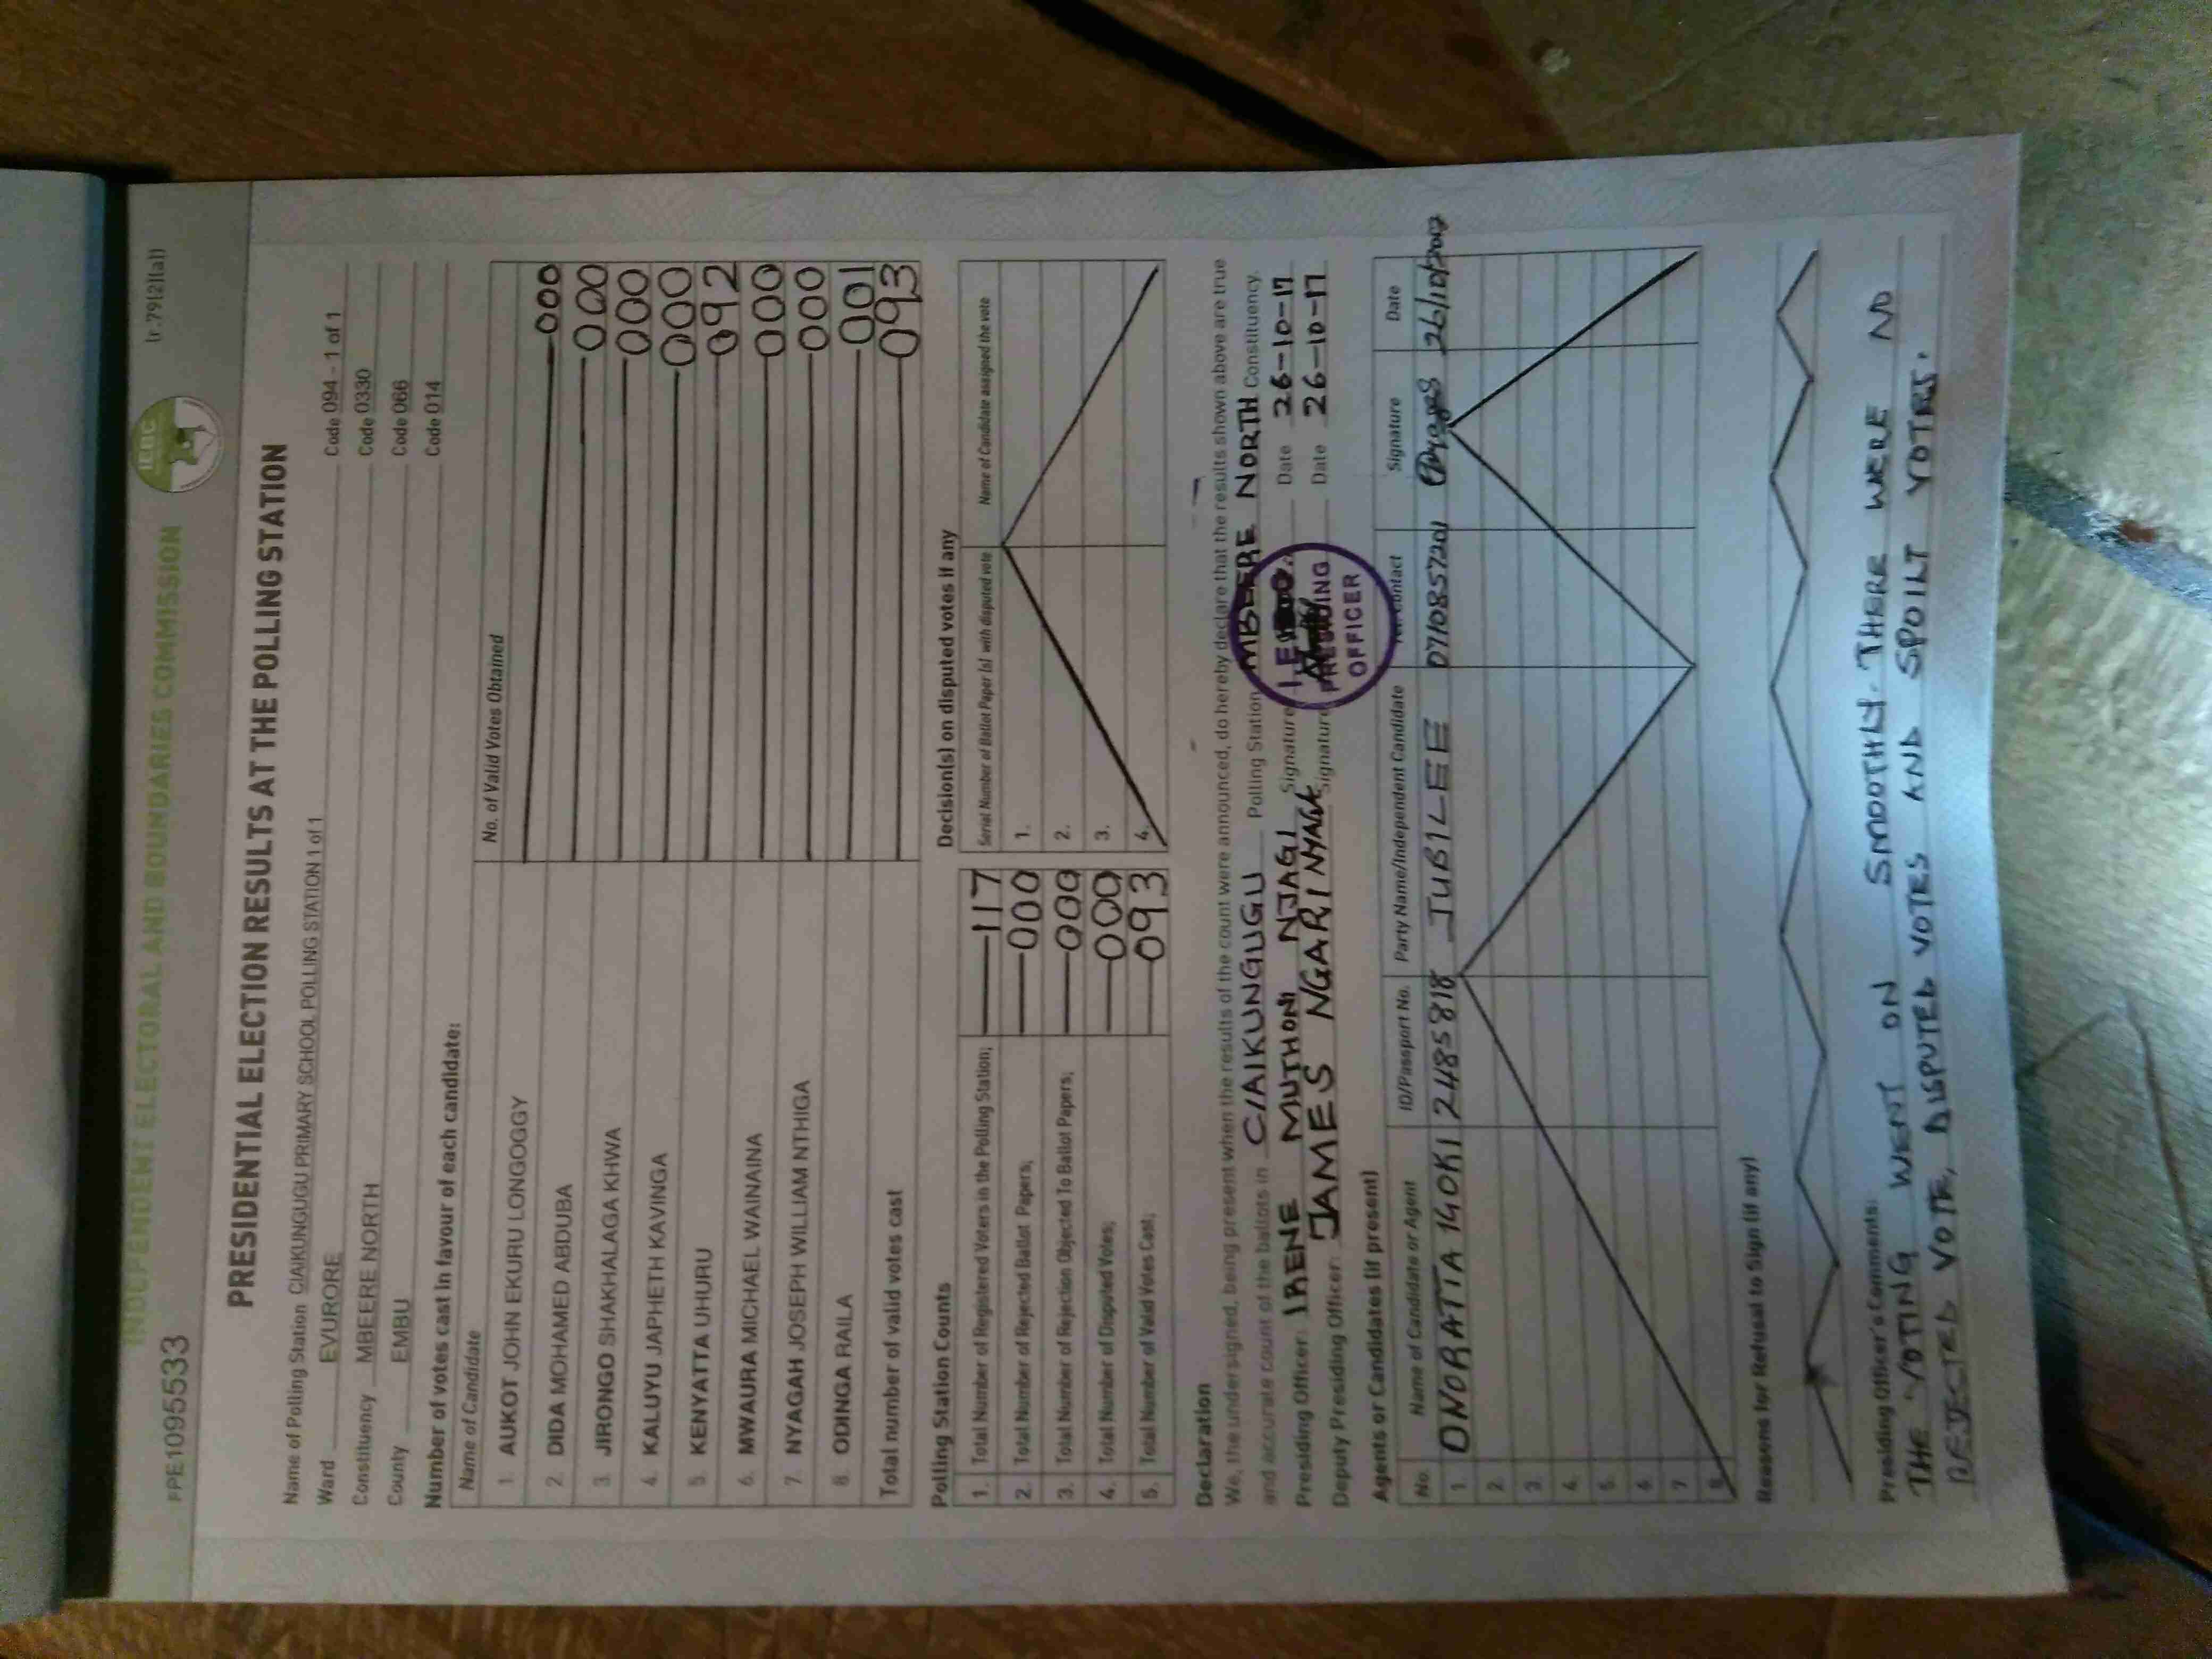 (r.79(2)(a))
IEBC
INDEPENDENT ELECTORAL AND BOUNDARIES COMMISSION
PPE1095533
PRESIDENTIAL ELECTION RESULTS AT THE POLLING STATION
Name of Polling Station CIAIKUNGUGU PRIMARY SCHOOL POLLING STATION 1 of 1 Code 094 - 1 of 1
Ward EVURORE Code 0330
Constituency MBEERE NORTH Code 066
County EMBU Code 014
Number of votes cast in favour of each candidate:
Name of Candidate No. of Valid Votes Obtained
1. AUKOT JOHN EKURU LONGOGGY 000
2. DIDA MOHAMED ABDUBA 000
3. JIRONGO SHAKHALAGA KHWA 000
4. KALUYU JAPHETH KAVINGA 000
5. KENYATTA UHURU 092
6. MWAURA MICHAEL WAINAINA 000
7. NYAGAH JOSEPH WILLIAM NTHIGA 000
8. ODINGA RAILA 001
Total number of valid votes cast 093
Polling Station Counts Decision(s) on disputed votes if any
Serial Number of Ballot Paper (s) with disputed vote Name of Candidate assigned the vote
1. Total Number of Registered Voters in the Polling Station; 117 1.
2. Total Number of Rejected Ballot Papers; 000 2.
3. Total Number of Rejection Objected To Ballot Papers; 000 3.
4. Total Number of Disputed Votes; 000 4.
5. Total Number of Valid Votes Cast; 093
Declaration
We, the undersigned, being present when the results of the count were announced, do hereby declare that the results shown above are true
and accurate count of the ballots in CIAIKUNGUGU Polling Station MBEERE NORTH Constituency.
Presiding Officer: IRENE MUTHONI NJAGI Signature Date 26-10-17
Deputy Presiding Officer: JAMES NGARI NYAGA Signature Date 26-10-17
PRESIDING
OFFICER
Agents or Candidates (if present)
No. Name of Candidate or Agent ID/Passport No. Party Name/Independent Candidate Contact Signature Date
1. ONORATTA IGOKI 2485818 JUBILEE 0710857201 26/10/2017
2.
3.
4.
5.
6
7
8
Reasons for Refusal to Sign (if any)
Presiding Officer's Comments:
THE VOTING WENT ON SMOOTHLY. THERE WERE NO
REJECTED VOTE, DISPUTED VOTES AND SPOILT VOTES.